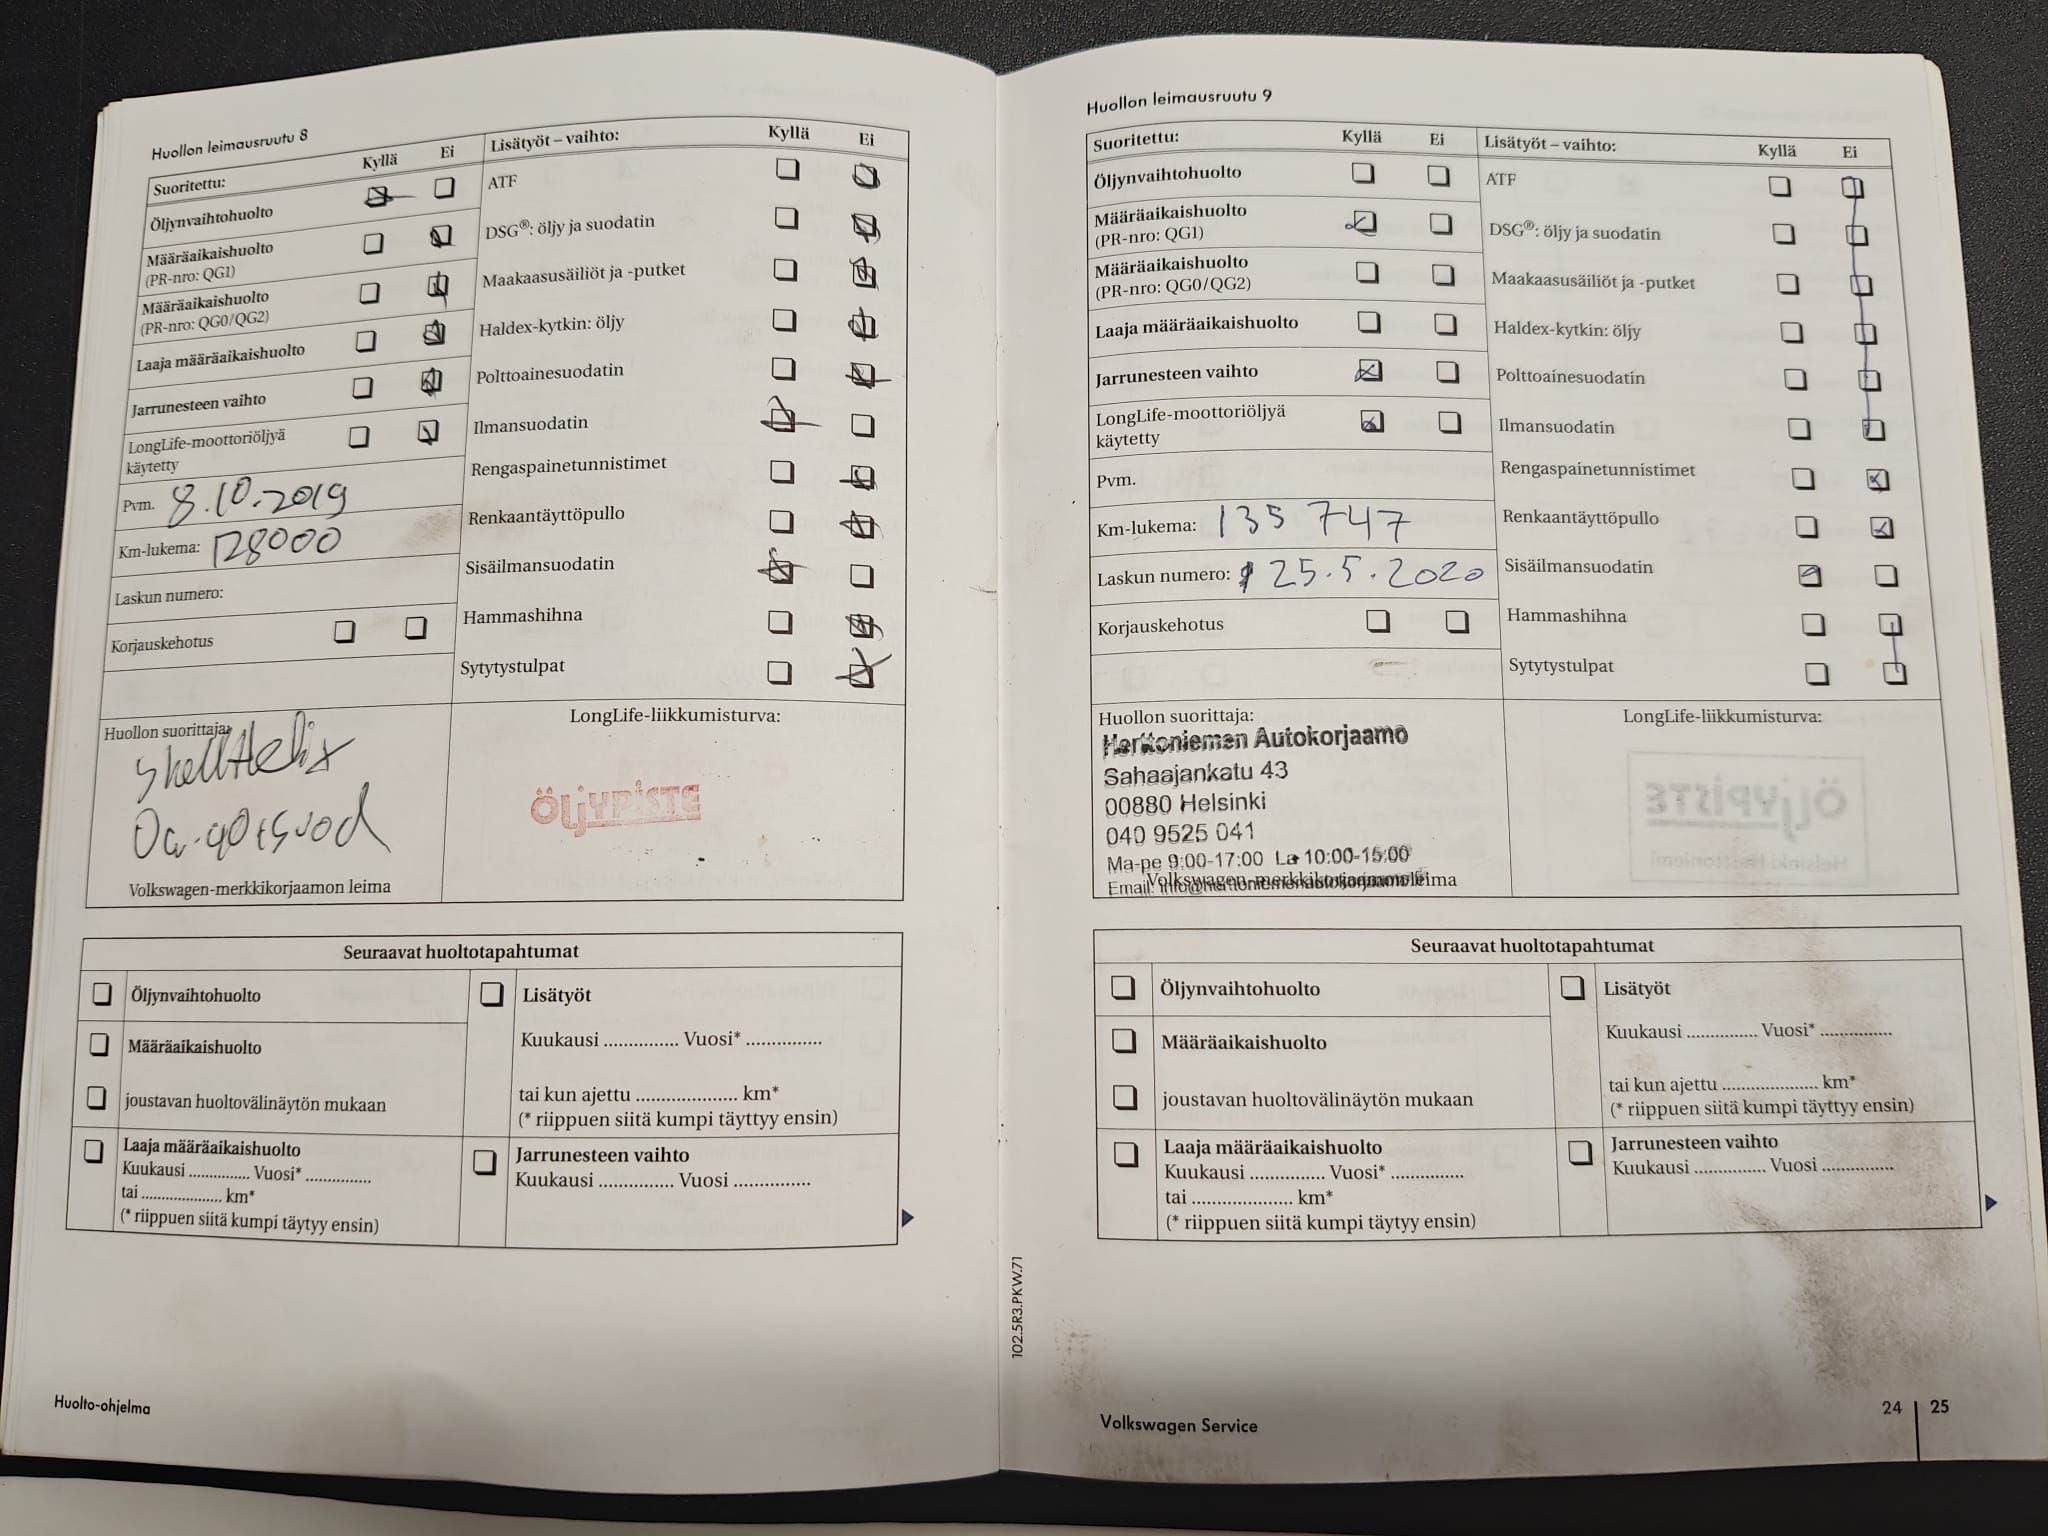 Huollon leimausruutu 8
Suoritettu: Kyllä Ei
Öljynvaihtohuolto
Määräaikaishuolto
(PR-nro: QG1)
Määräaikaishuolto
(PR-nro: QG0/QG2)
Laaja määräaikaishuolto
Jarrunesteen vaihto
LongLife-moottoriöljyä
käytetty
Pvm. 8.10.2019
Km-lukema: 128000
Laskun numero:
Korjauskehotus
Lisätyöt – vaihto: Kyllä Ei
ATF
DSG®: öljy ja suodatin
Maakaasusäiliöt ja -putket
Haldex-kytkin: öljy
Polttoainesuodatin
Ilmansuodatin
Rengaspainetunnistimet
Renkaantäyttöpullo
Sisäilmansuodatin
Hammashihna
Sytytystulpat
Huollon suorittaja:
Shell Helix
Volkswagen-merkkikorjaamon leima
LongLife-liikkumisturva:
ÖLJYPISTE
Seuraavat huoltotapahtumat
Öljynvaihtohuolto
Määräaikaishuolto
joustavan huoltovälinäytön mukaan
Laaja määräaikaishuolto
Kuukausi .............. Vuosi* ..............
tai ..................... km*
(* riippuen siitä kumpi täytyy ensin)
Lisätyöt
Kuukausi ............... Vuosi* ...............
tai kun ajettu .................... km*
(* riippuen siitä kumpi täyttyy ensin)
Jarrunesteen vaihto
Kuukausi ............... Vuosi ...............
Huolto-ohjelma
Huollon leimausruutu 9
Suoritettu: Kyllä Ei
Öljynvaihtohuolto
Määräaikaishuolto
(PR-nro: QG1)
Määräaikaishuolto
(PR-nro: QG0/QG2)
Laaja määräaikaishuolto
Jarrunesteen vaihto
LongLife-moottoriöljyä
käytetty
Pvm.
Km-lukema: 135 747
Laskun numero: 25.5.2020
Korjauskehotus
Lisätyöt – vaihto: Kyllä Ei
ATF
DSG®: öljy ja suodatin
Maakaasusäiliöt ja -putket
Haldex-kytkin: öljy
Polttoainesuodatin
Ilmansuodatin
Rengaspainetunnistimet
Renkaantäyttöpullo
Sisäilmansuodatin
Hammashihna
Sytytystulpat
Huollon suorittaja:
Herttoniemen Autokorjaamo
Sahaajankatu 43
00880 Helsinki
040 9525 041
Ma-pe 9:00-17:00 La 10:00-15:00
Email: info@herttoniemenautokorjaamo.fi
Volkswagen-merkkikorjaamon leima
LongLife-liikkumisturva:
Seuraavat huoltotapahtumat
Öljynvaihtohuolto
Määräaikaishuolto
joustavan huoltovälinäytön mukaan
Laaja määräaikaishuolto
Kuukausi ............... Vuosi* ...............
tai ..................... km*
(* riippuen siitä kumpi täytyy ensin)
Lisätyöt
Kuukausi .............. Vuosi* ...............
tai kun ajettu .................... km*
(* riippuen siitä kumpi täyttyy ensin)
Jarrunesteen vaihto
Kuukausi ............... Vuosi ...............
102.5R3.PKW.71
Volkswagen Service
24 | 25